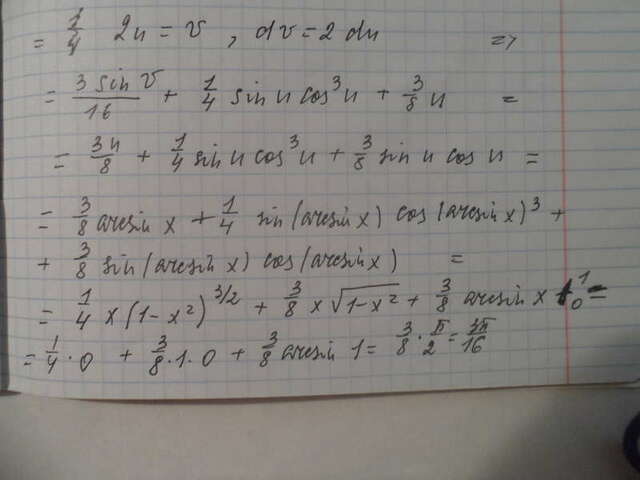 = 1/4 2u = v , dv = 2 du =>
= 3 sin v / 16 + 1/4 sin u cos³ u + 3/8 u =
= 3u/8 + 1/4 sin u cos³ u + 3/8 sin u cos u =
= 3/8 arcsin x + 1/4 sin(arcsin x) cos(arcsin x)³ +
+ 3/8 sin(arcsin x) cos(arcsin x) =
= 1/4 x(1-x²)^3/2 + 3/8 x √(1-x²) + 3/8 arcsin x |₀¹ =
= 1/4 · 0 + 3/8 · 1 · 0 + 3/8 arcsin 1 = 3/8 · π/2 = 3π/16